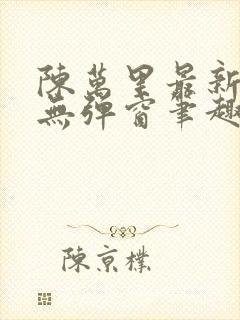 陳萬里最新
無彈窗筆趣
陳京檏